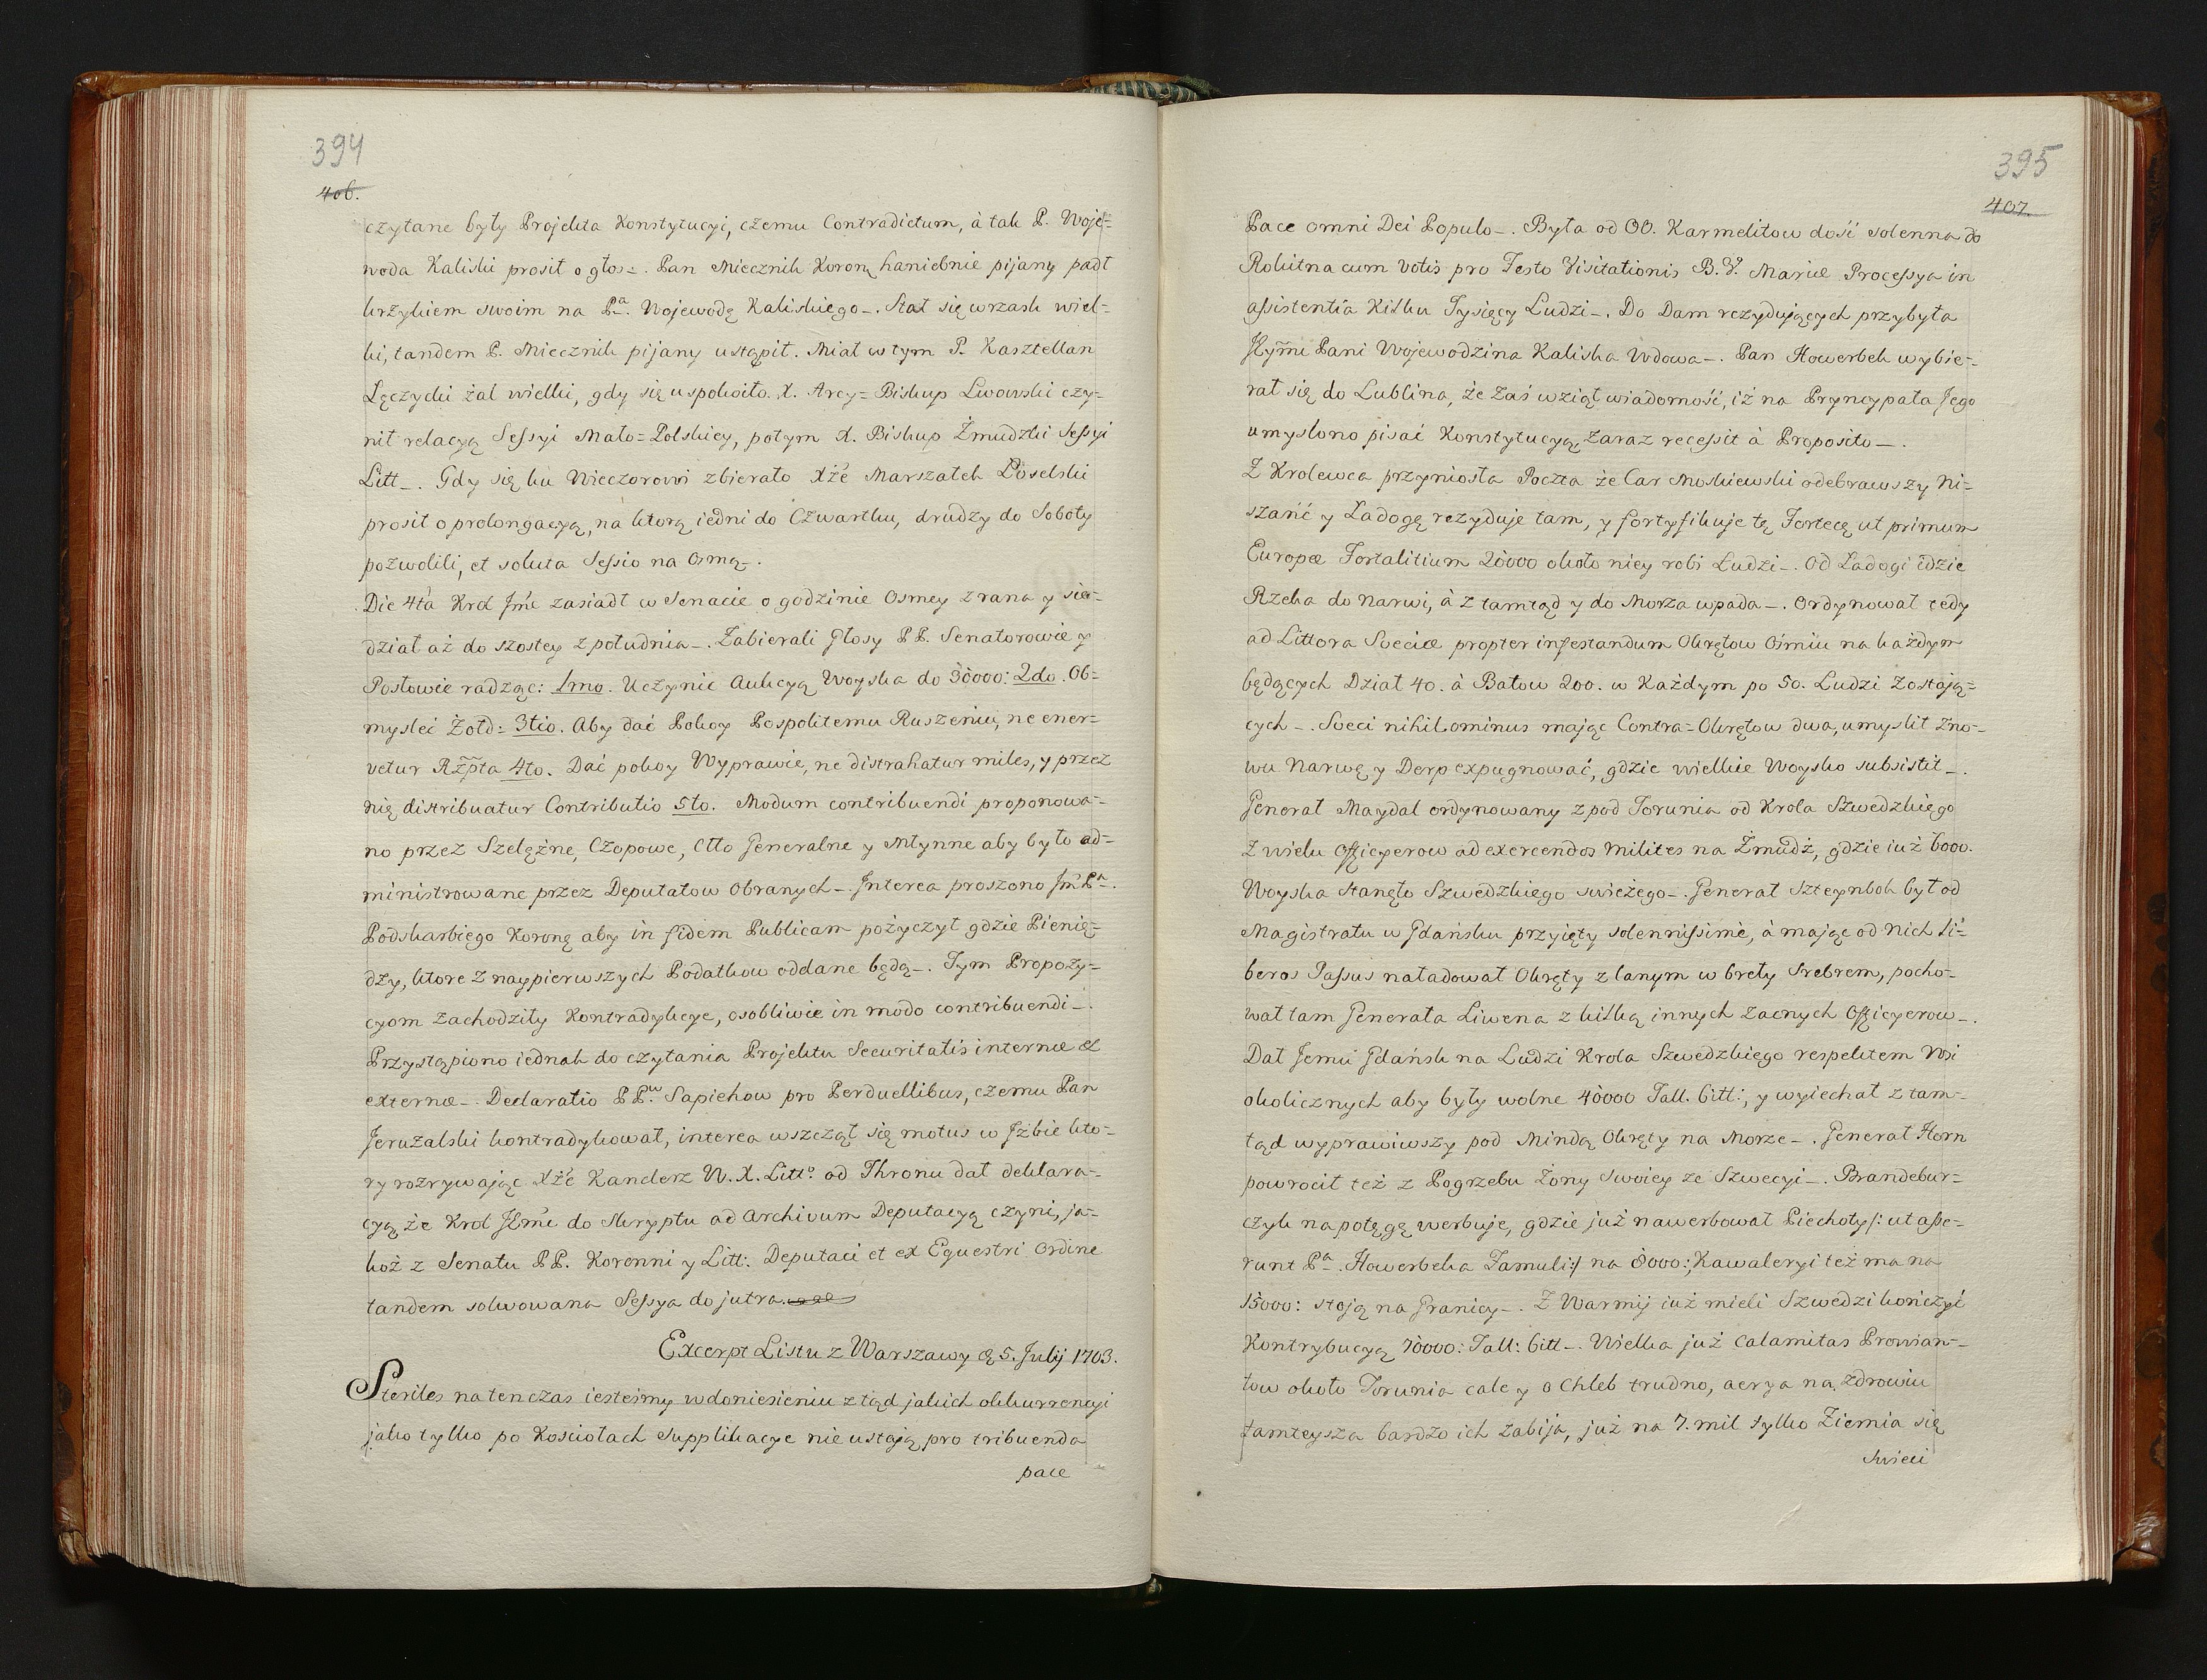 394
406.
czytane były Projekta Konstytucyi, czemu Contradictum, à tak P. Woje=
woda Kaliski prosił o głos_. Pan Miecznik Koroną haniebnie pijany padł
krzykiem swoim na Pa. Wojewodę Kaliskiego_. Stał się wrzask wiel=
ki, tandem P. Miecznik pijany ustąpił. Miał w tym P. Kasztellan
Łęczycki żal wielki, gdy się uspokoiło. X. Arcy=Biskup Lwowski czy=
nił relacyą Sessyi Mało=Polskiey, potym X. Biskup Żmudzki Sessyi
Litt_. Gdy się ku Wieczorowi zbierało Xżé Marszałek Poselski
prosił o prolongacyą, na ktorą iedni do Czwartku, drudzy do Soboty
pozwolili, et soluta Sessio na osmą_.
Die 4ta Krol Jmć zasiadł w Senacie o godzinie Osmey z rana y sie=
dział aż do szostey z południa_. Zabierali Głosy PP. Senatorowie y
Posłowie radząc: 1mo. Uczynic Aukcyą Woyska do 30000: 2do. Ob=
myslec Żołd: 3tio. Aby dać Pokoy Pospolitemu Ruszeniu, ne ener=
vetur Rzpta 4to. Dać pokoy Wyprawie, ne distrahatur miles, y przez
nię distribuatur Contributio 5to. Modum contribuendi proponowa=
no przez Szelężne, Czopowe, Cło Generalne y Młynne aby było ad=
ministrowane przez Deputatow Obranych_. Interea proszono Jm Pa.
Podskarbiego Koroną aby in fidem Publicam pożyczył gdzie Pienię=
dzy, ktore z naypierwszych Podatkow oddane będą_. Tym Propozy=
cyom zachodziły Kontradykcye, osobliwie in modo contribuendi_.
Przystąpiono iednak do czytania Projektu Securitatis internæ et
externæ_. Declaratio PPw. Sapiehow pro Perduellibus, czemu Pan
Jeruzalski kontradykował, interea wszczął się motus w Jzbie kto=
ry rozrywając Xżé Kanclerz W. X. Litto. od Thronu dał deklara=
cyą, że Krol JEmć do skryptu ad Archivum Deputacyą czyni, ja=
koż z Senatu PP. Koronni y Litt: Deputaci et ex Equestri Ordine
tandem solwowana Sessya do jutra.
Excerpt Listu z Warszawy d. 5. Julij 1703.
Steriles na ten czas iestesmy w doniesieniu z tąd jakich okkurrencyi
jako tylko po Kosciołach Supplikacye nie ustają pro tribuenda
pace
395
407.
Pace omni Dei Populo_. Była od OO. Karmelitow dość solenna do
Rokitna cum Votis pro Festo Visitationis B.V. Mariæ Processya in
assistentia Kilku Tysięcy Ludzi_. Do Dam rezydujących przybyła
JEymć Pani Wojewodzina Kaliska Wdowa_. Pan Howerbek wybie=
rał się do Lublina, że zaś wziął wiadomość, iż na Pryncypała Jego
umyslono pisać Konstytucyą, zaraz recessit à Proposito_.
Z Krolewca przyniosła Poczta że Car Moskiewski odebrawszy Ni=
szańć y Ladogę rezyduje tam, y fortyfikuje tę Fortecę ut primum
Europæ Fortalitium 20000 około niey robi Ludzi_. Od Ladogi idzie
Rzeka do Narwi, à z tamtąd y do Morza wpada_. Ordynował tedy
ad Littora Sveciæ propter infestandum Okrętow Ośmiu na każdym
będących Dział 40. à Batow 200. w Każdym po 50. Ludzi zostają=
cych_. Sveci nihilominus mając Contra=Okrętow dwa, umyslił zno=
wu Narwę y Derp expugnować, gdzie wielkie Woysko subsistit_.
Generał Maydal ordynowany z pod Torunia od Krola Szwedzkiego
z wielu Officyerow ad exercendos milites na Żmudź, gdzie iuż 6000.
Woyska stanęło Szwedzkiego swieżego_. Generał Szteynbok był od
Magistratu w Gdańsku przyięty solennissimè, à mając od nich li=
beros Passus naładował Okręty z lanym w breły Srebrem, pocho=
wał tam Generała Liwena z kilką innych zacnych Officyerow_.
Dał Jemu Gdańsk na Ludzi Krola Szwedzkiego respektem Wsi
okolicznych aby były wolne 40000 Tall. bitt:, y wyiechał z tam=
tąd wyprawiwszy pod Mindą Okręty na Morze_. Generał Horn
powrocił też z Pogrzebu Żony swoiey ze Szwecyi_. Brandebur=
czyk na potęgę werbuje, gdzie już nawerbował Piechoty /: ut asse=
runt Pa. Howerbeka Famuli :/ na 8000:, Kawaleryi też ma na
15000: stoją na Granicy_. Z Warmij iuż mieli Szwedzi kończyć
Kontrybucyą 70000: Tall: bitt_. Wielka już calamitas Prowian=
tow około Torunia cale y o Chleb trudno, aerya na zdrowiu
tamteysza bardzo ich zabija, już na 7. mil tylko Ziemia się
swieci